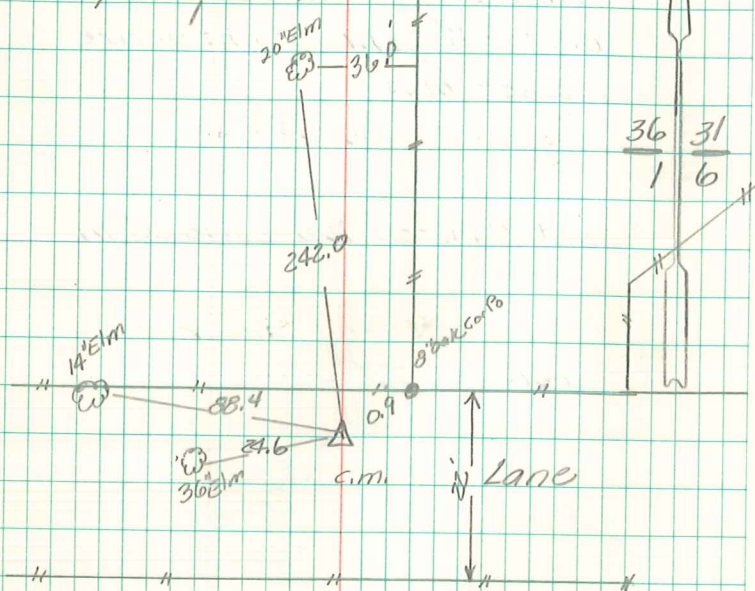 20" Elm
36
36 31
1 6
242.0
8" oak Cor Po
14" Elm
88.4
0.9
24.6
36" Elm
C.M.
Lane